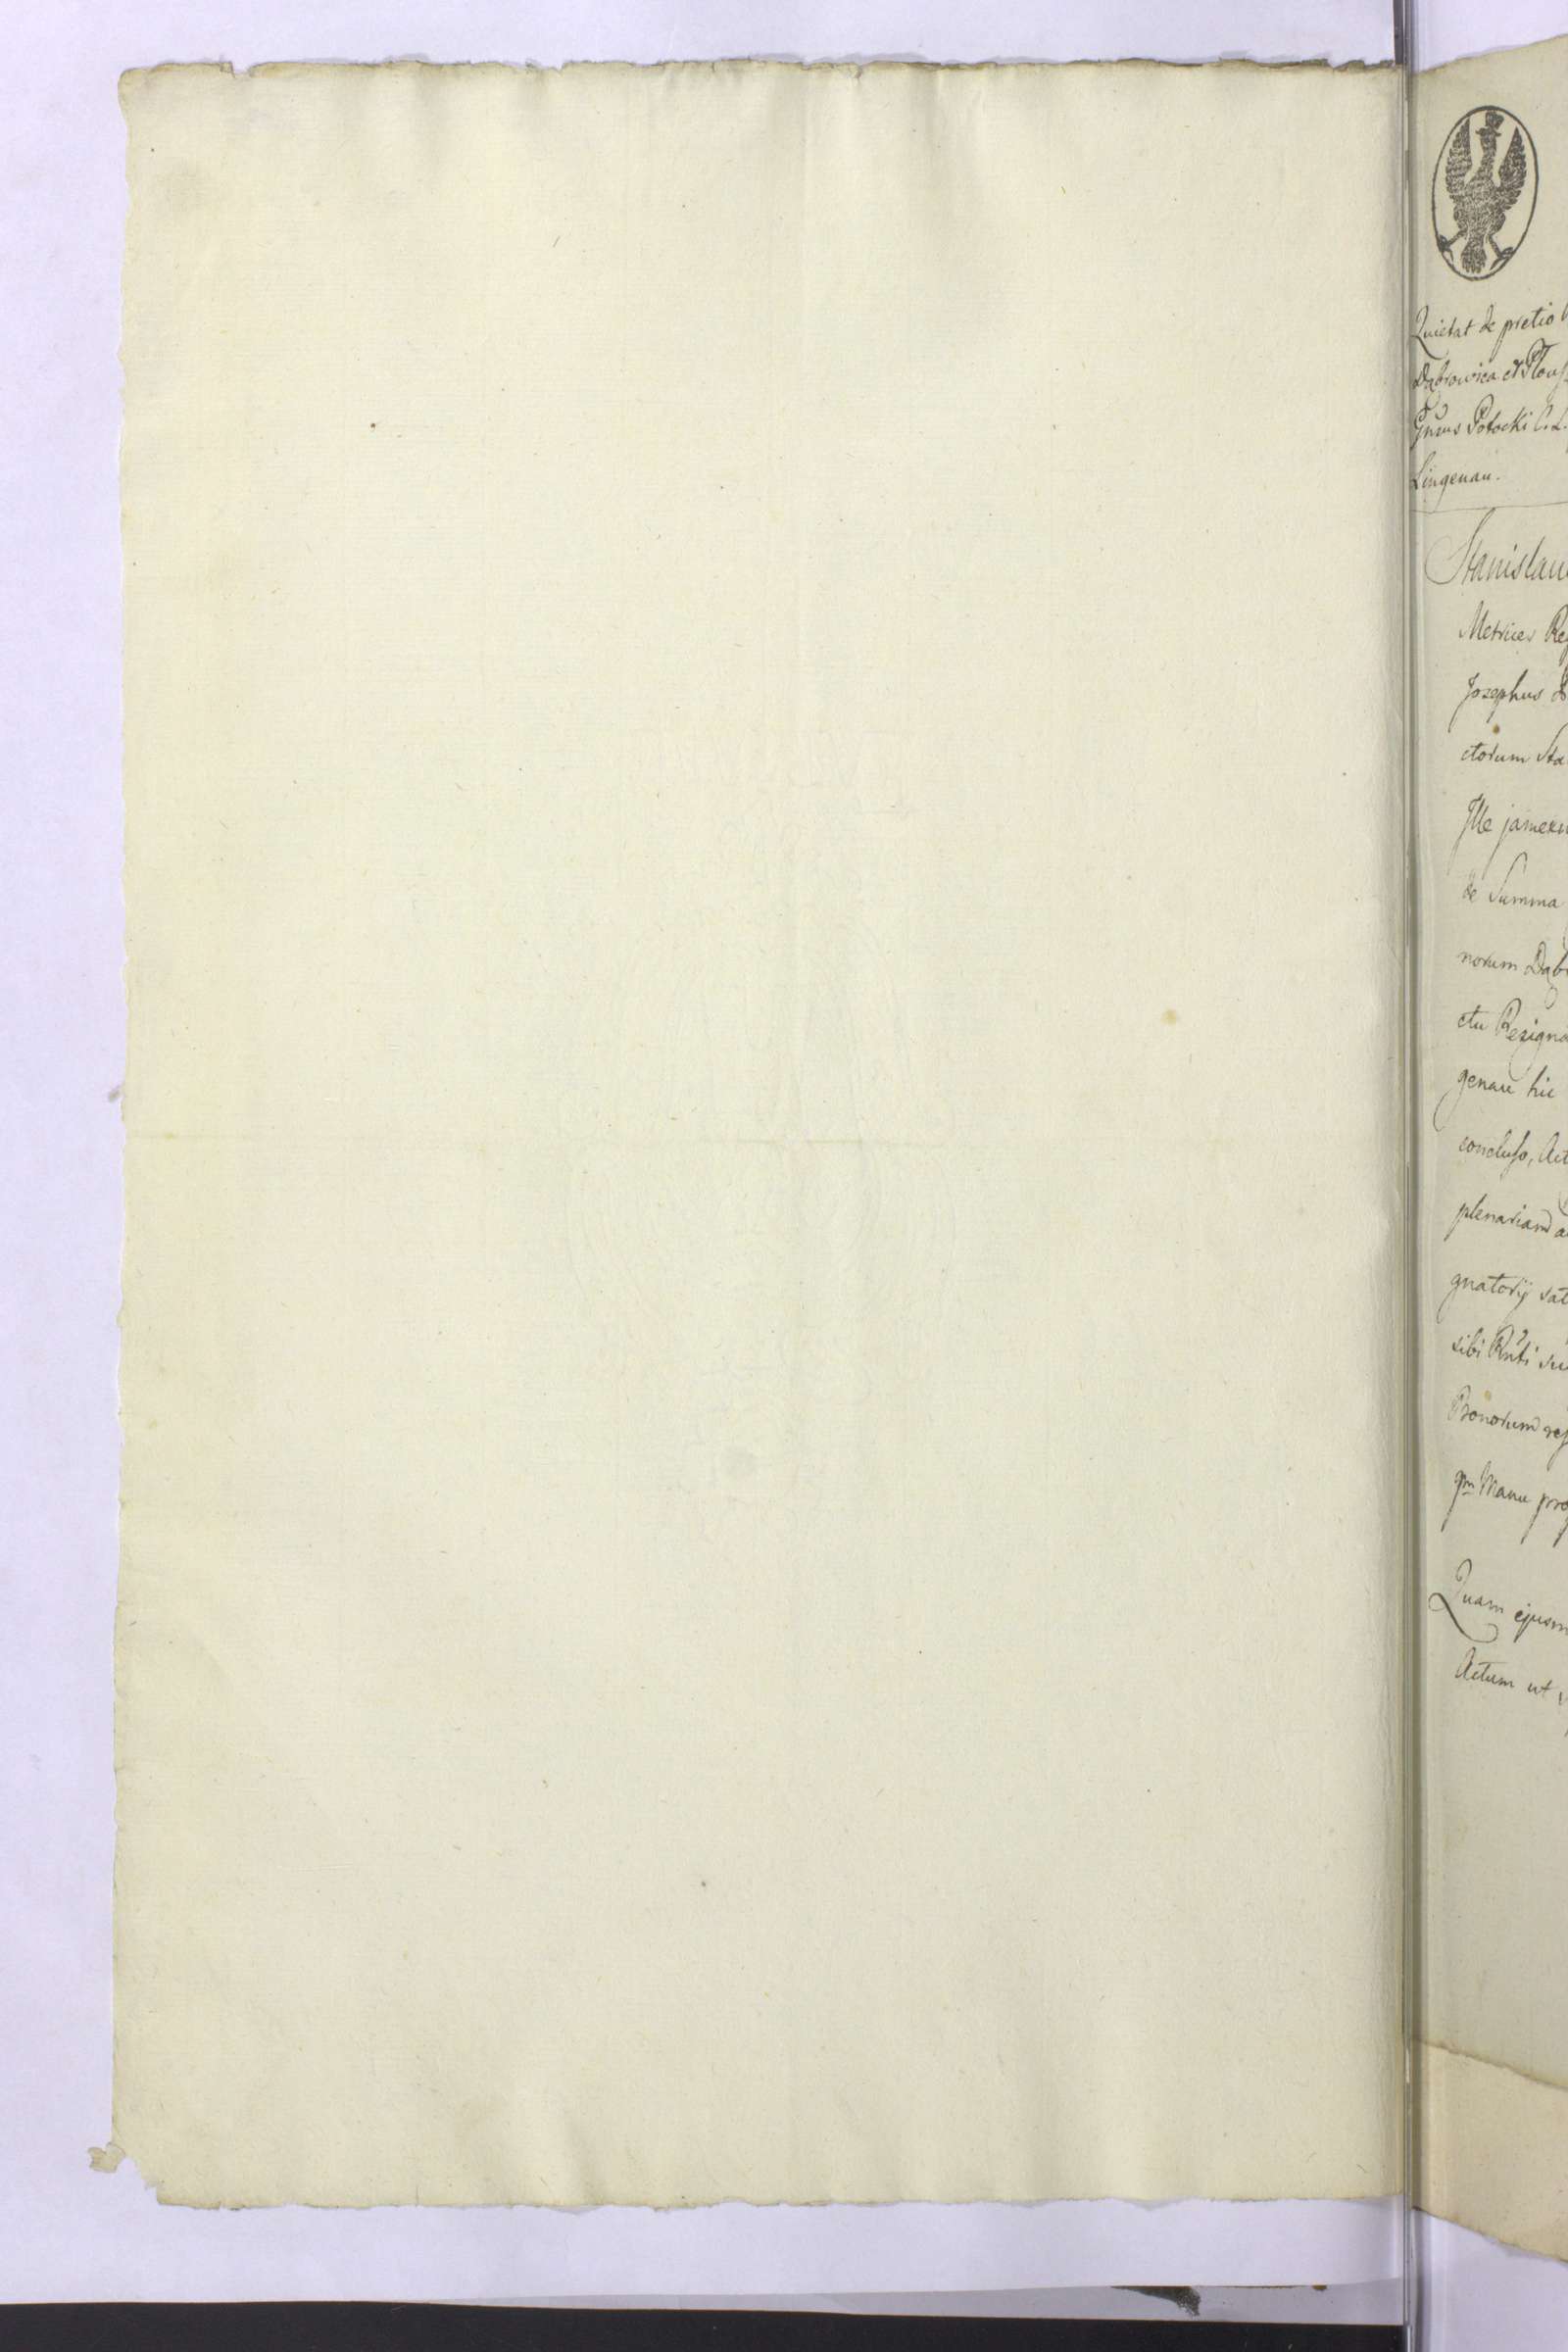 Quietat de pretio
Dąbrowica et
Potocki C. L.
Lingenau.
Stanislau
Metrices Reg
Josephus
ctorum Sta
Ille jamexu
de Summa
norum Dąb
ctu Resigna
genau hic
concluso, Act
plenariam a
gnatorij sat
sibi Rnti su
Bonorum res
qm Manu pro
Quam ejusm
Actum ut